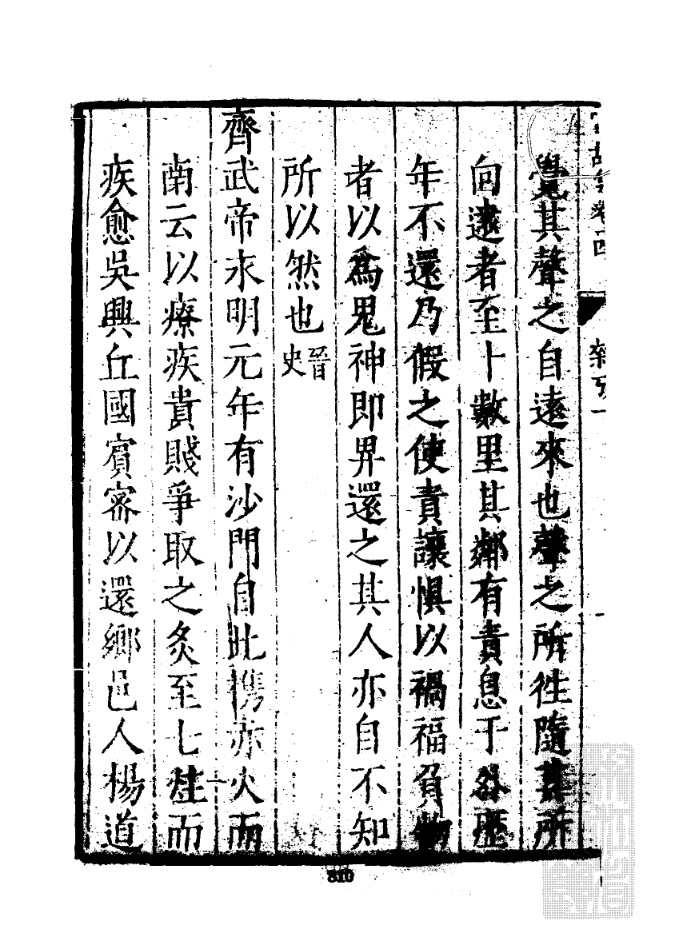 覺其聲之自遠來也聲之所往隨其所
向遠者至十數里其鄰有責息于外歷
年不還乃假之使責讓惧以禍福負物
者以為鬼神即畀還之其人亦自不知
所以然也晉史
齊武帝永明元年有沙門自北擕赤火而
南云以療疾貴賤爭取之灸至七炷而
疾愈吳興丘國賔宻以還鄉邑人楊道
310